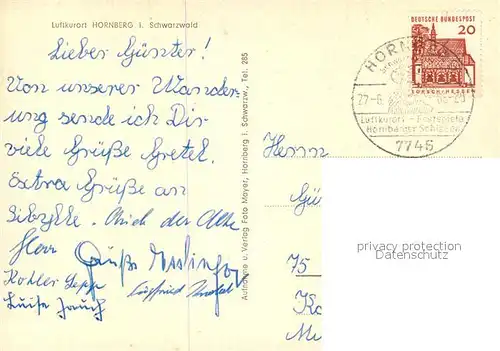 Luftkurort HORNBERG i. Schwarzwald
Lieber Günter!
Von unserer Wander-
ung sende ich Dir
viele Grüße Gretel.
Extra Grüße an
Auch der Alte
Herr
Grüße
Kohler Sepp
Siegfried
Luise Jauch
Aufnahme u. Verlag Foto Mayer, Hornberg i. Schwarzw., Tel. 285
DEUTSCHE BUNDESPOST
20
LORSCH·HESSEN
HORNBERG
27-6
Luftkurort - Festspiele
Hornberger Schießen
7746
Herrn
75
privacy protection
Datenschutz